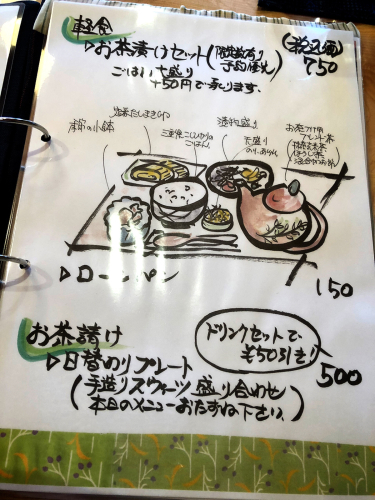 軽食
(税込価)
▷お茶漬けセット(限定数有り 予約優先) 750
ごはん大盛り
+50円で承ります。
出来たしまきタマゴ
季節の小鉢
三重産こしひかりの
ごはん
漬物盛り
天盛り
のり、あられ
お茶づけ用
ブレンド茶
抹茶玄米茶
ほうじ茶
▷ローンパン 150
お茶請け
ドリンクセットで
¥50引き
▷日替わりプレート 500
(手造りスウィーツ盛り合わせ
本日のメニューおたずね下さい。)